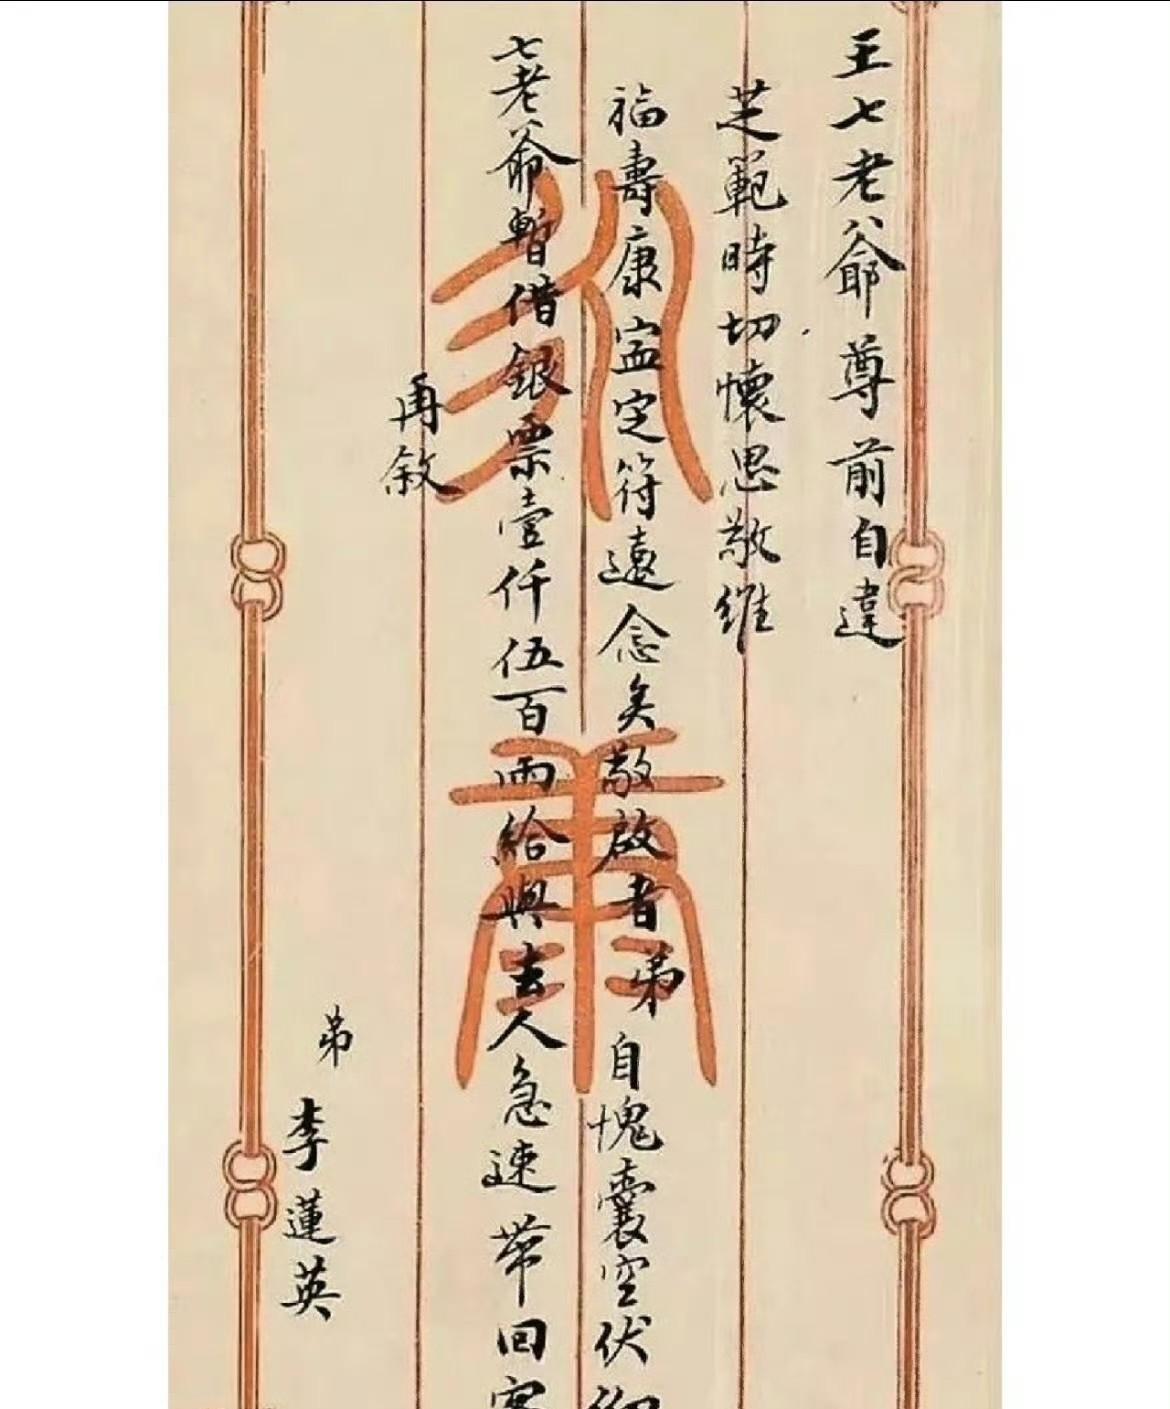 王七老爺尊前自違
芝範時切懷思敬維
福壽康寍定符遠念矣敬啟者弟自愧囊空伏
七老爺暫借銀票壹仟伍百兩給與去人急速帶回
再敘
弟
李蓮英